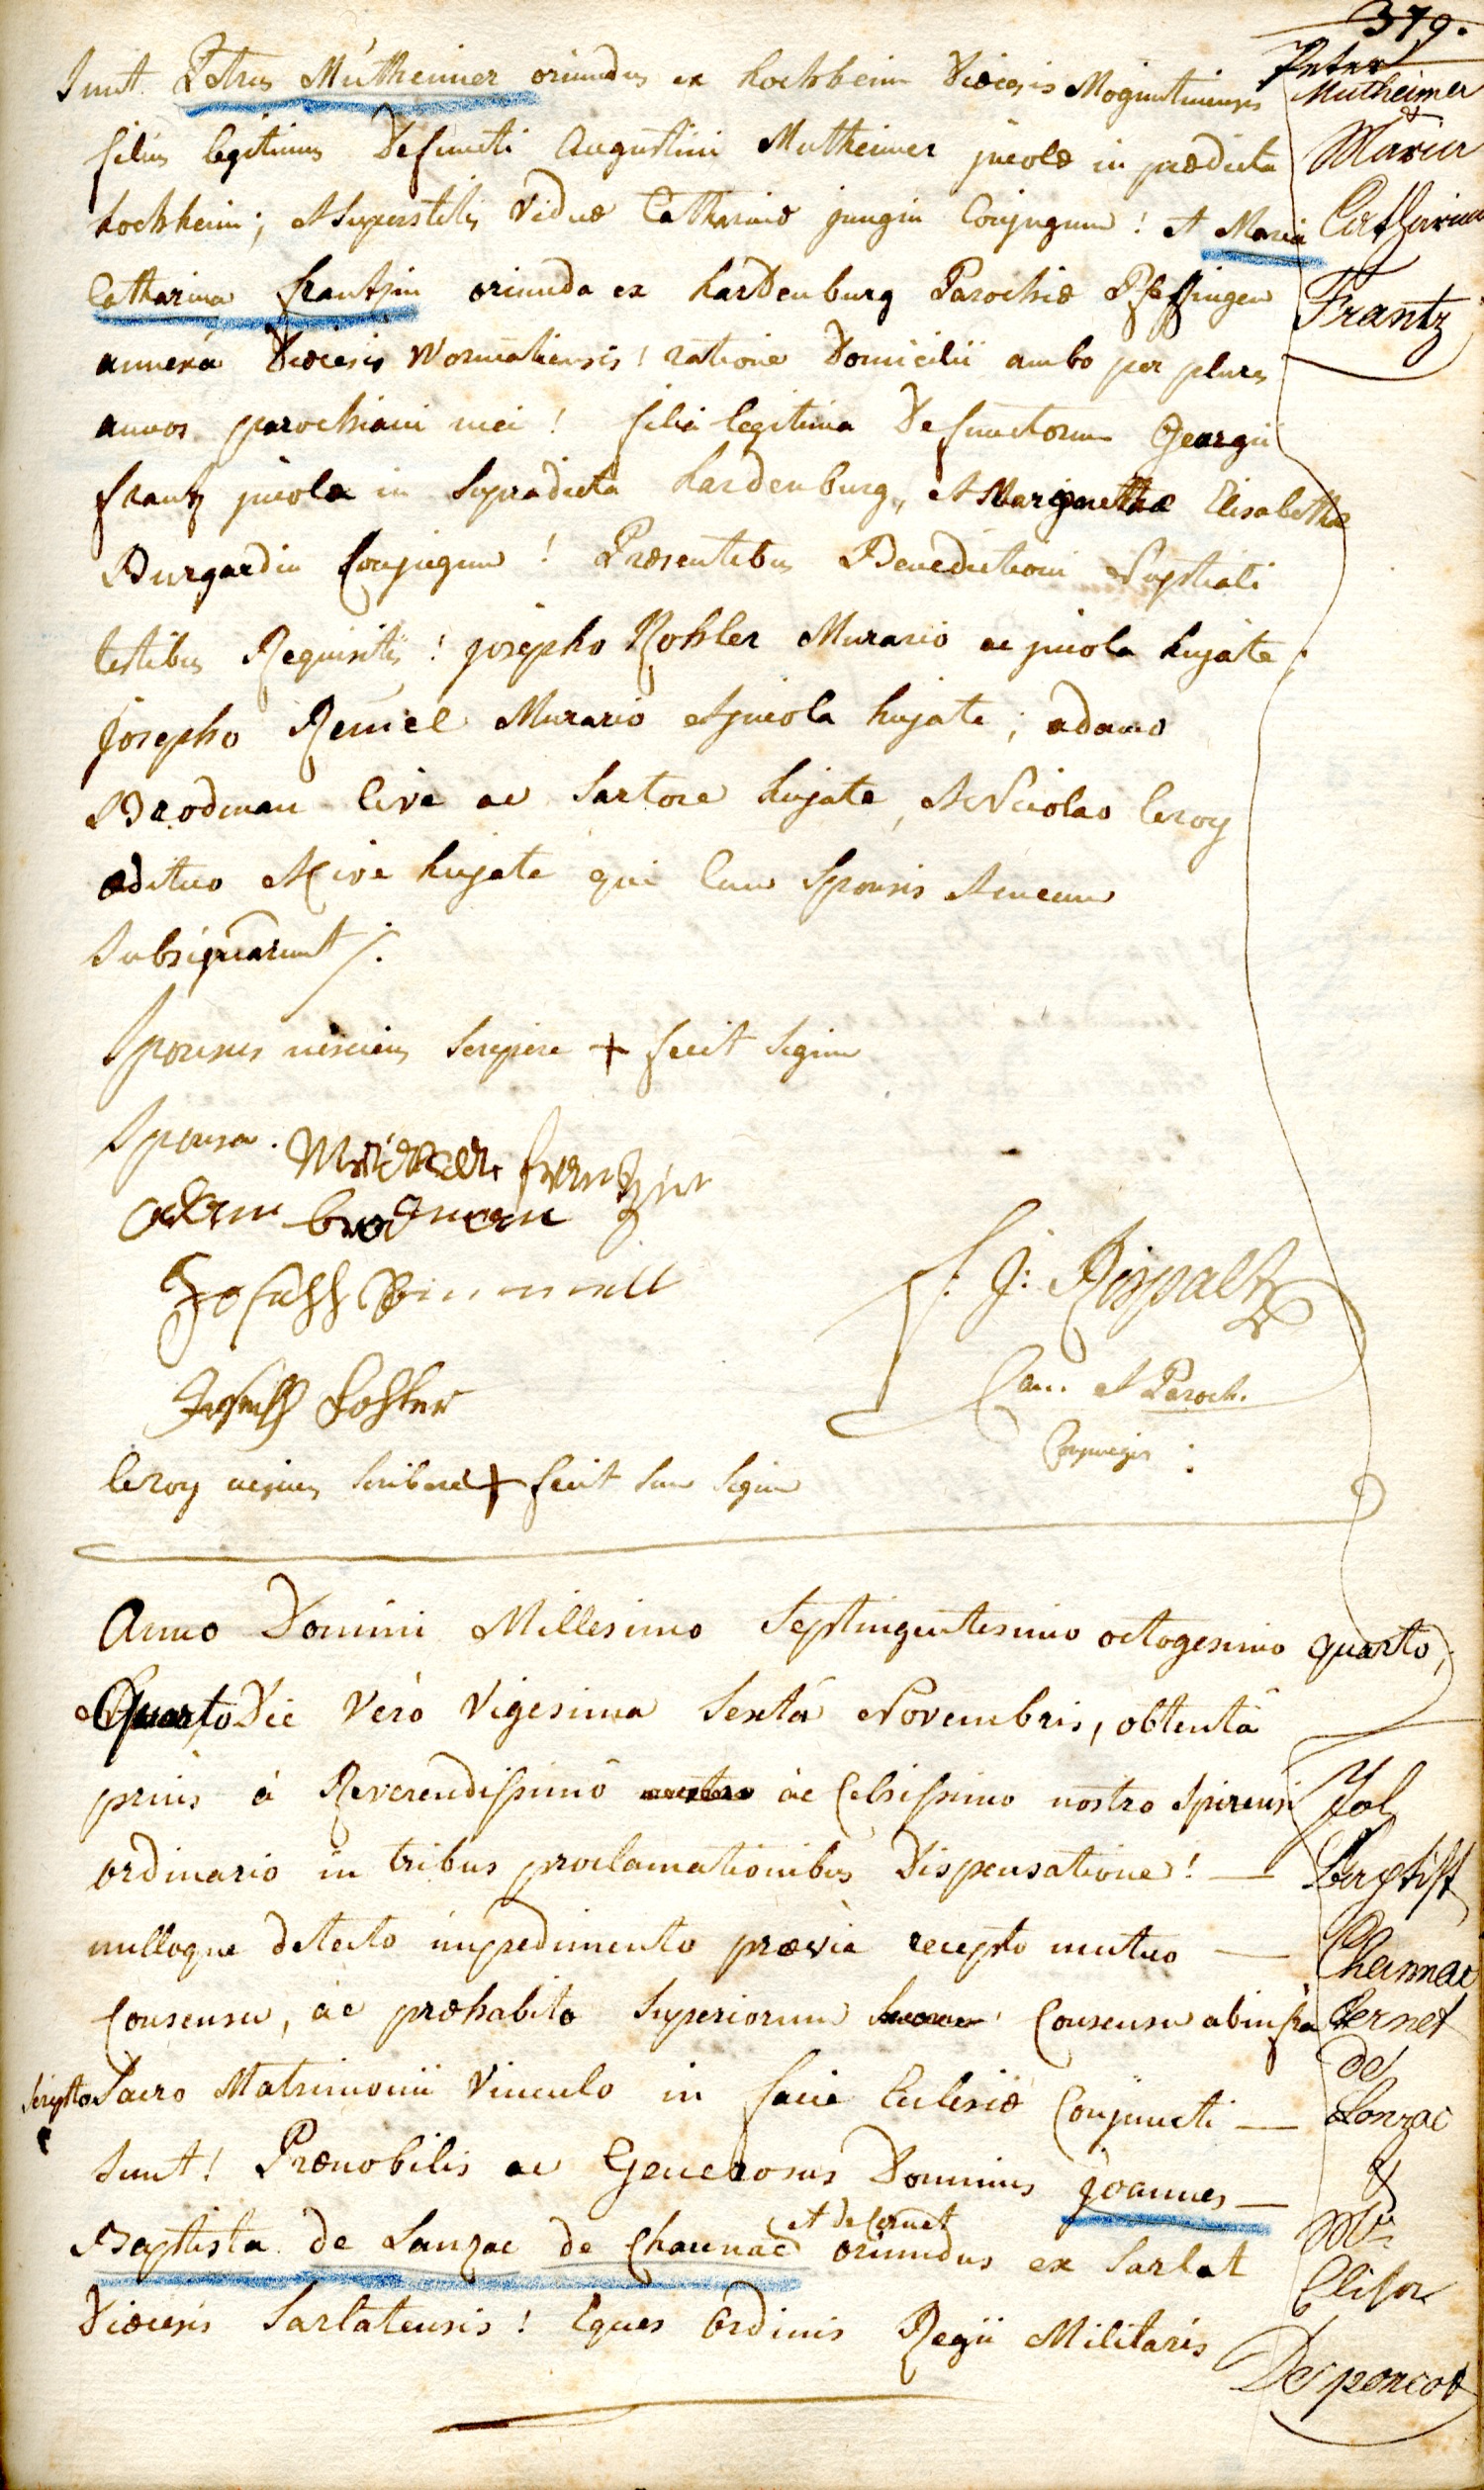 379.
Sunt. Petrus Mütheimer oriundus ex hochheim Diœcesis Moguntinensis
filius legitimus Defuncti Augustini Mutheimer incolæ in prædicta
hochheim; et superstitis Viduæ Catharinæ jungin Conjugum! et Maria
Catharina frantzin oriunda ex hardenburg Parochiæ Pfeffingen
annexa Diœcesis Wormatiensis! ratione Domicilii ambo per plures
annos parochiani mei! filia legitima Defunctorum Georgii
frantz incolæ in supradicta hardenburg, et Margarethæ Elisabethæ
Burgardin Conjugum! Præsentibus Benedictioni Nuptiali
testibus Requisitis! josepho Kohler Murario ac incola hujate;
josepho Remel Murario et incola hujate; adamo
Brodman Cive ac Sartore hujate, et Nicolao leroy
ædituo et Cive hujate qui Cum Sponsis et mecum
Subsignarunt /.
Sponsus nesciens scribere + fecit signum
Sponsa. frantzin
adam brodmann
Joseph
Joseph Kohler
leroy nescius scribere + fecit suum signum
f. J: Rispalt
Can. et Paroch.
:
Peter
Mutheimer
&
Maria
Catharina
Frantz
Anno Domini Millesimo Septingentesimo octogesimo quarto,
Quarto Die Vero Vigesima Sexta Novembris, obtenta
prius à Reverendissimo nostro ac Celsissimo nostro Spirensi
ordinario in tribus proclamationibus Dispensatione! —
nulloque detecto impedimento prævia recepto mutuo —
Consensu, ac præhabito Superiorum suorum Consensu ab infra
scripto Sacro Matrimonii Vinculo in facie Ecclesiæ Conjuncti —
Sunt! Prænobilis ac Generosus Dominus joannes —
Baptista de Lanzac de Chaunac et de Cernet oriundus ex Sarlat
Diœcesis Sarlatensis! Eques Ordinis Regii Militaris
Joh
Baptist
de
Chaunac
Cernet
de
Lonzac
&
Mia
Elisa
Desponcot